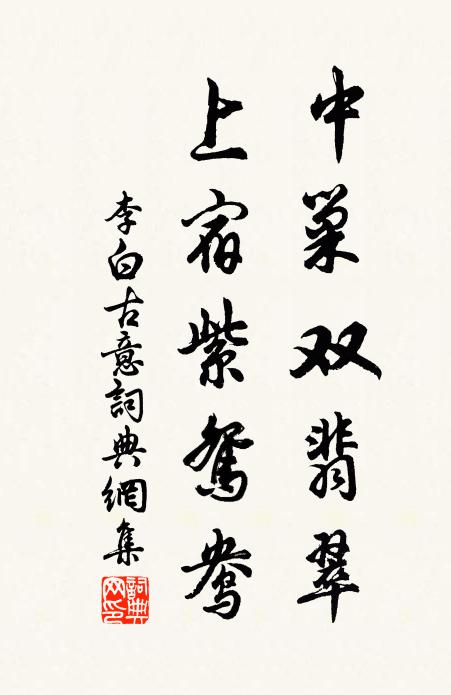 中巢双翡翠
上宿紫鸳鸯
李白古意詞典網集
詞典网印